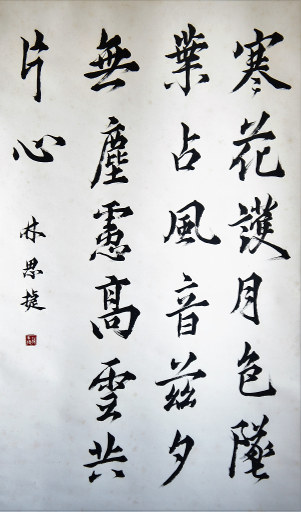 寒花護月色墜
葉占風音茲夕
無塵慮高雲共
片心
林思捷